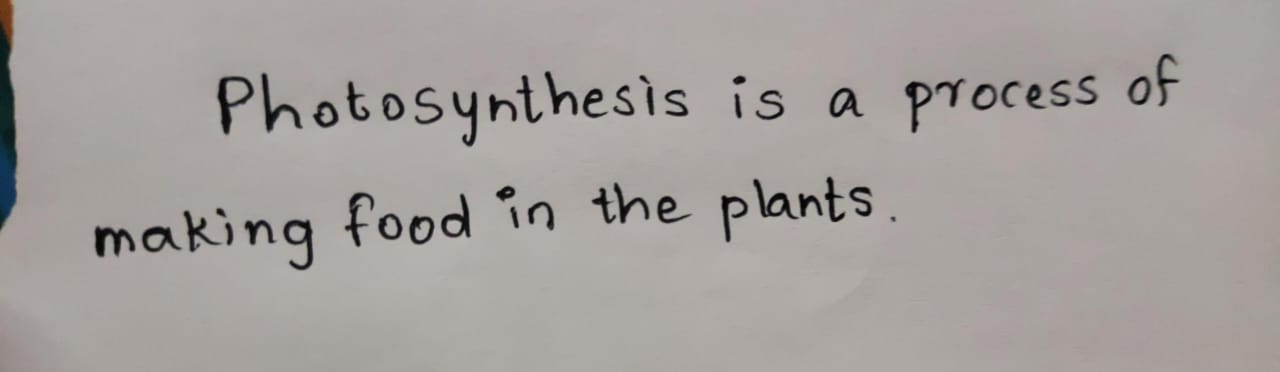 Photosynthesis is a process of
making food in the plants.